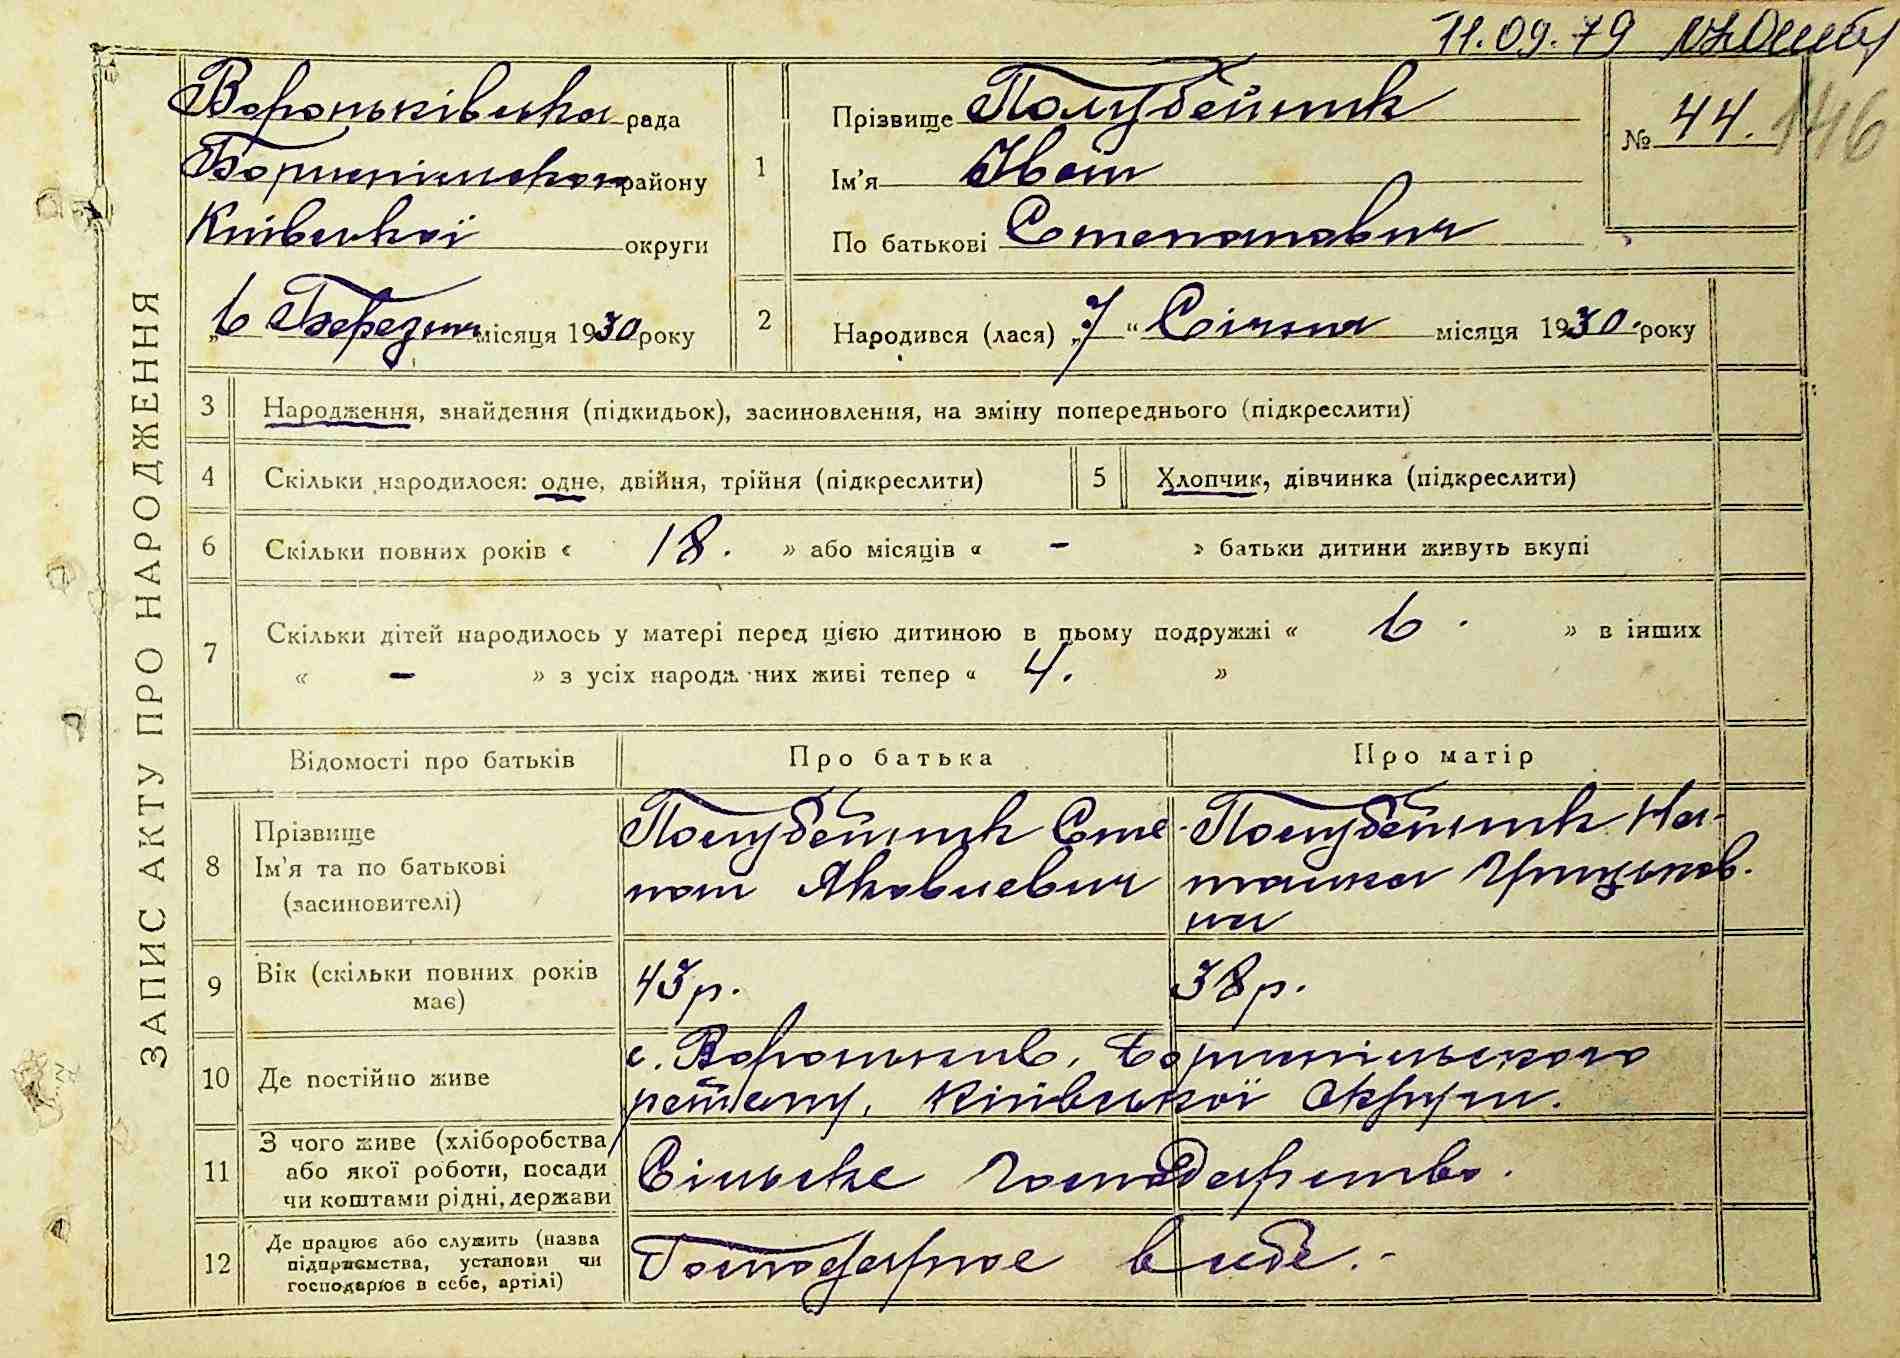 11.09.79
146
ЗАПИС АКТУ ПРО НАРОДЖЕННЯ
Вороньківська рада
Бориспільського району
Київської округи
„6 Березня місяця 1930 року
1
Прізвище Полубейник
Ім'я Іван
По батькові Степанович
№ 44.
2
Народився (лася) „7“ Січня місяця 1930. року
3 Народження, знайдення (підкидьок), засиновлення, на зміну попереднього (підкреслити)
4 Скільки народилося: одне, двійня, трійня (підкреслити)
5 Хлопчик, дівчинка (підкреслити)
6 Скільки повних років « 18. » або місяців « - » батьки дитини живуть вкупі
7 Скільки дітей народилось у матері перед цією дитиною в цьому подружжі « 6 . » в інших
« - » з усіх народж них живі тепер « 4. »
Відомості про батьків Про батька Про матір
8 Прізвище
Ім'я та по батькові
(засиновителі)
Полубейник Сте-
пан Яковлевич
Полубейник На-
талка Грицьков-
на
9 Вік (скільки повних років
має)
43 р.
38 р.
10 Де постійно живе
с. Вороньків, Бориспільського
району, Київської округи.
11 З чого живе (хліборобства
або якої роботи, посади
чи коштами рідні, держави
Сільське господарство.
12 Де працює або служить (назва
підприємства, установи чи
господарює в себе, артілі)
Господарює в себе.-